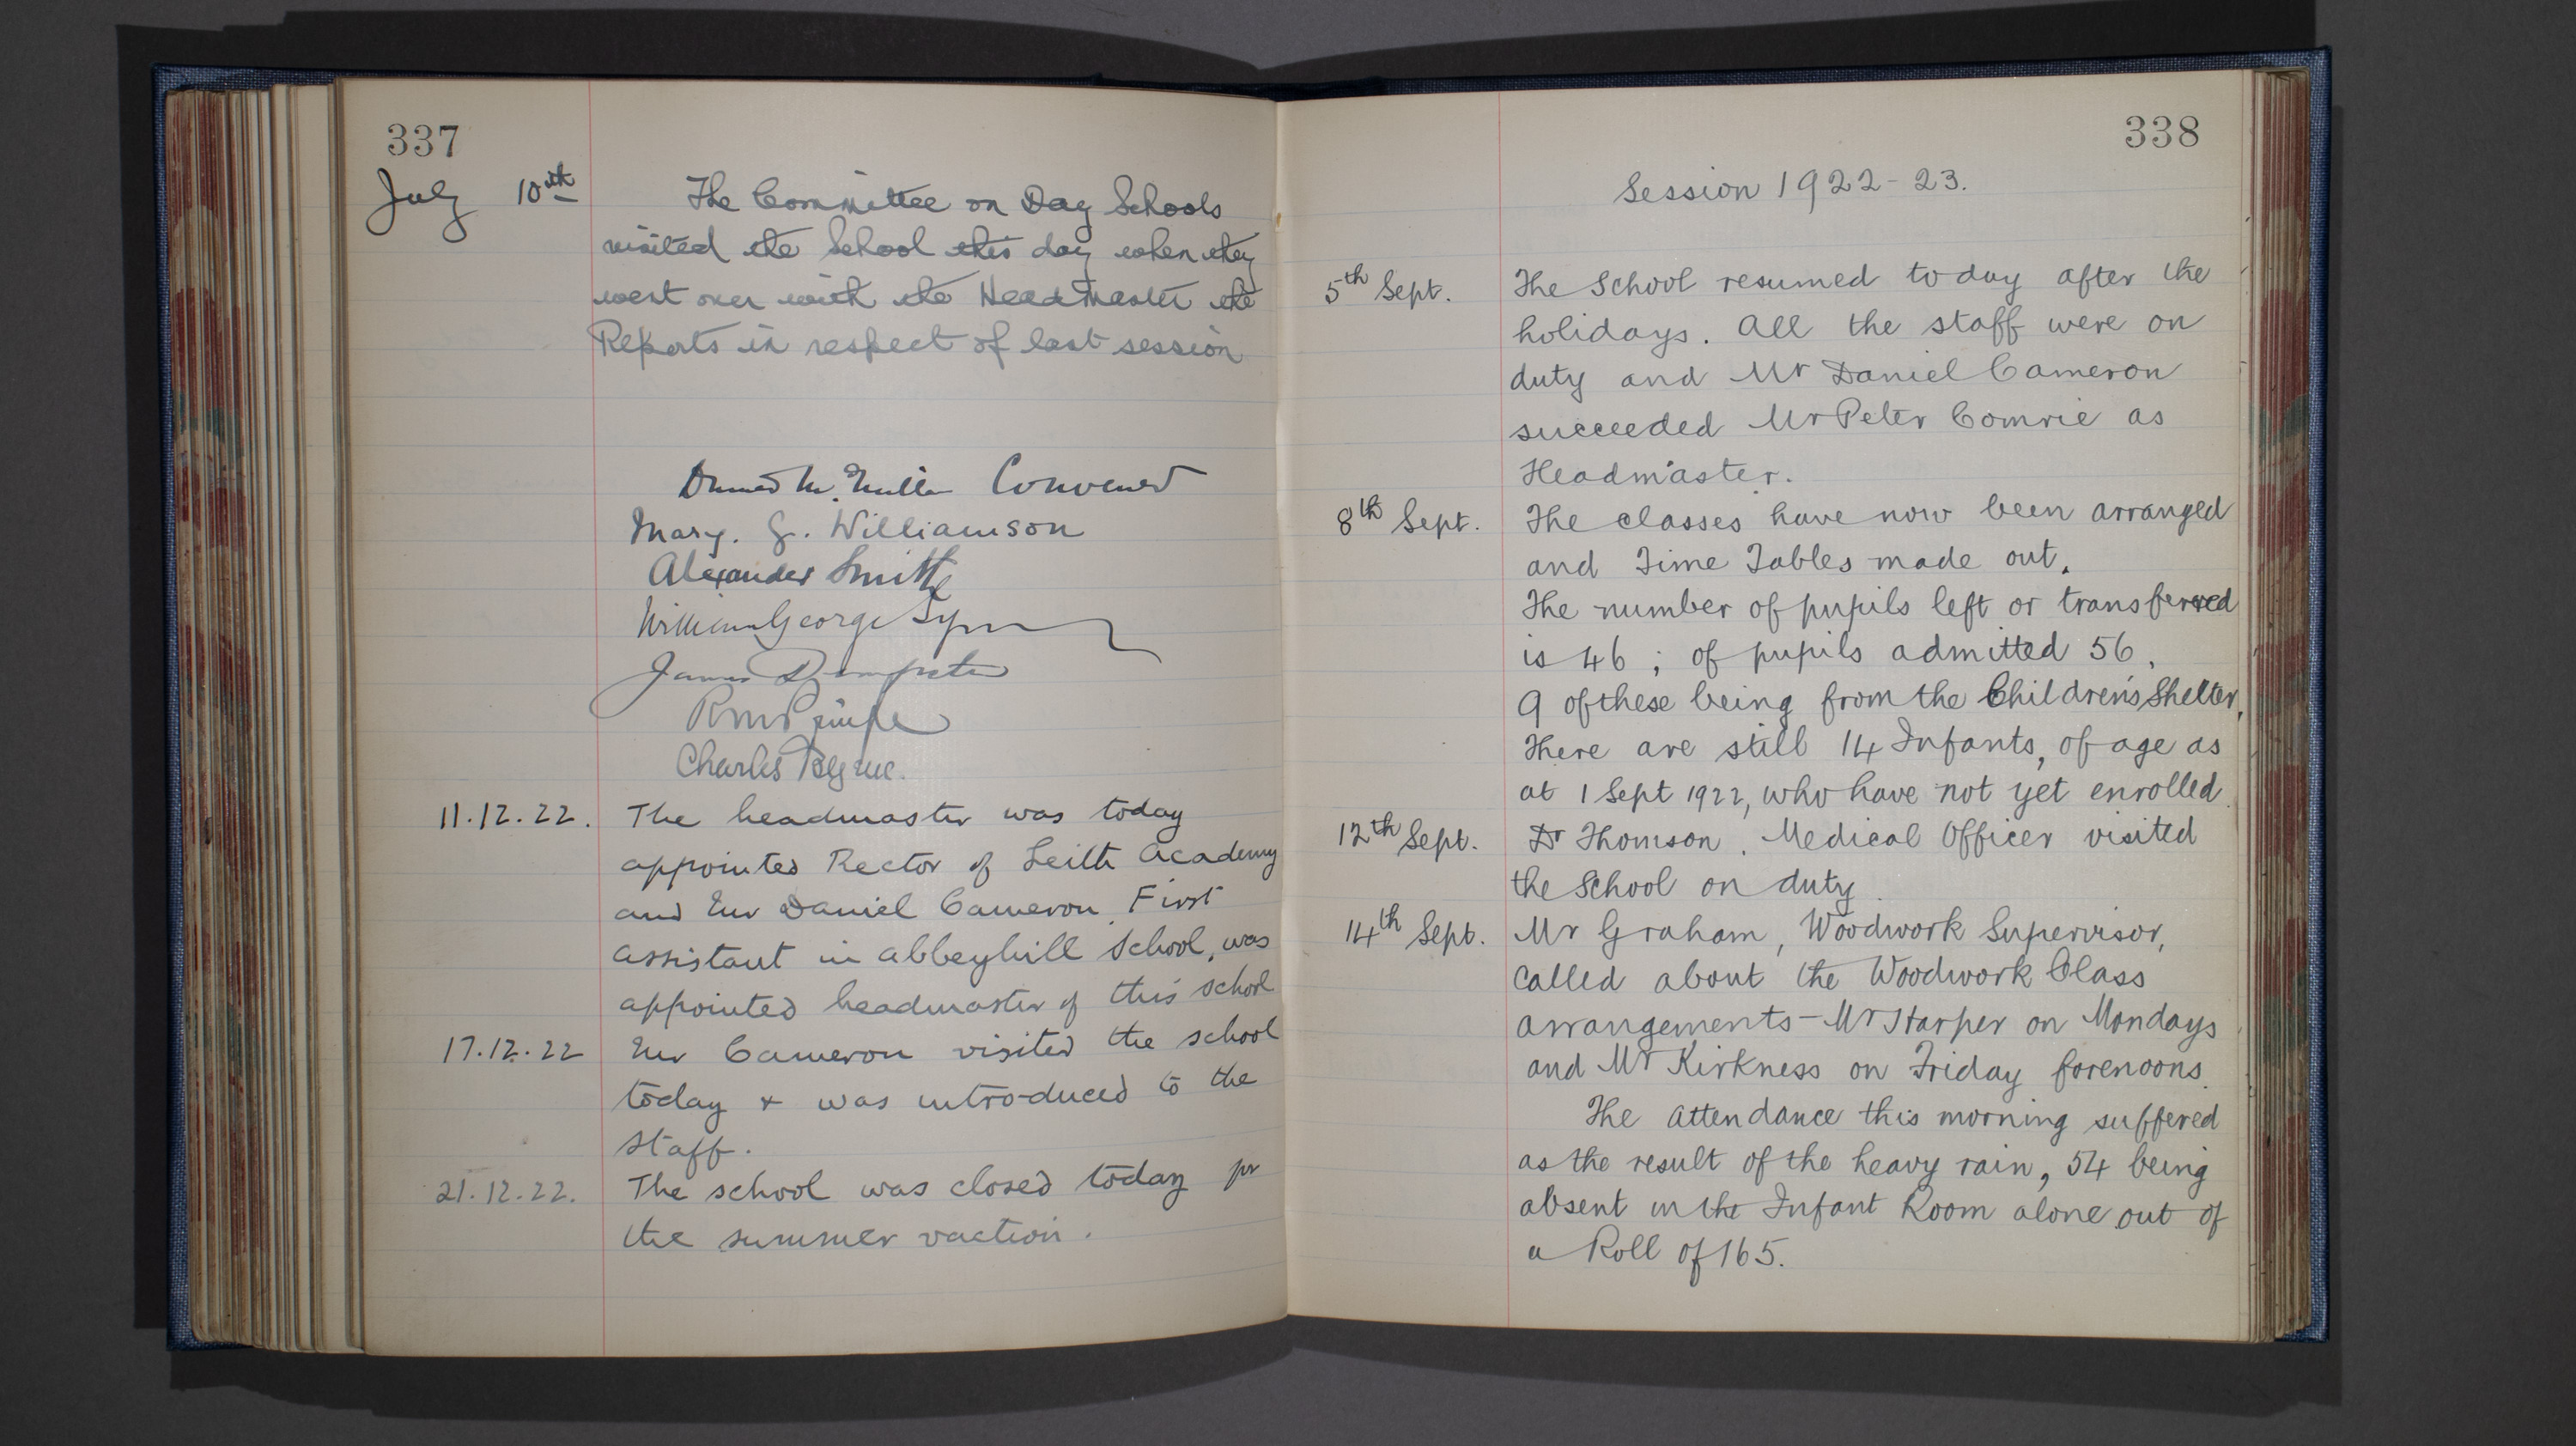 337
July 10th The Committee on Day Schools
visited the School this day when they
went over with the Headmaster the
Reports in respect of last session
Convener
Mary. G. Williamson
Alexander Smith
William George
James Dempster
Charles Byrne.
11.12.22. The headmaster was today
appointed Rector of Leith Academy
and Mr Daniel Cameron, First
assistant in Abbeyhill School, was
appointed headmaster of this school
17.12.22 Mr Cameron visited the school
today & was introduced to the
staff.
21.12.22. The school was closed today for
the summer vaction.
338
Session 1922-23.
5th Sept. The School resumed today after the
holidays. All the staff were on
duty and Mr Daniel Cameron
succeeded Mr Peter Comrie as
Headmaster.
8th Sept. The classes have now been arranged
and Time Tables made out.
The number of pupils left or transferred
is 46; of pupils admitted 56,
9 of these being from the Children's Shelter.
There are still 14 Infants, of age as
at 1 Sept 1922, who have not yet enrolled.
12th Sept. Dr Thomson, Medical Officer visited
the School on duty.
14th Sept. Mr Graham, Woodwork Supervisor,
called about the Woodwork Class
arrangements - Mr Harper on Mondays
and Mr Kirkness on Friday forenoons.
The attendance this morning suffered
as the result of the heavy rain, 54 being
absent in the Infant Room alone out of
a Roll of 165.